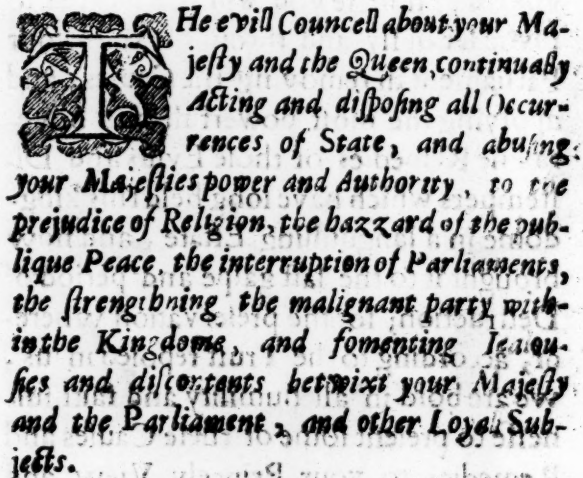 THe evill Councell about your Ma-
jeſty and the Queen, continually
Acting and diſpoſing all Occur-
rences of State, and abuſing
your Majeſties power and Authority, to the
prejudice of Religion, the hazzard of the pub-
lique Peace, the interruption of Parliaments,
the ſtrengthning the malignant party with-
in the Kingdome, and fomenting Jealou-
ſies and diſcontents betwixt your Majeſty
and the Parliament, and other Loyall Sub-
jects.